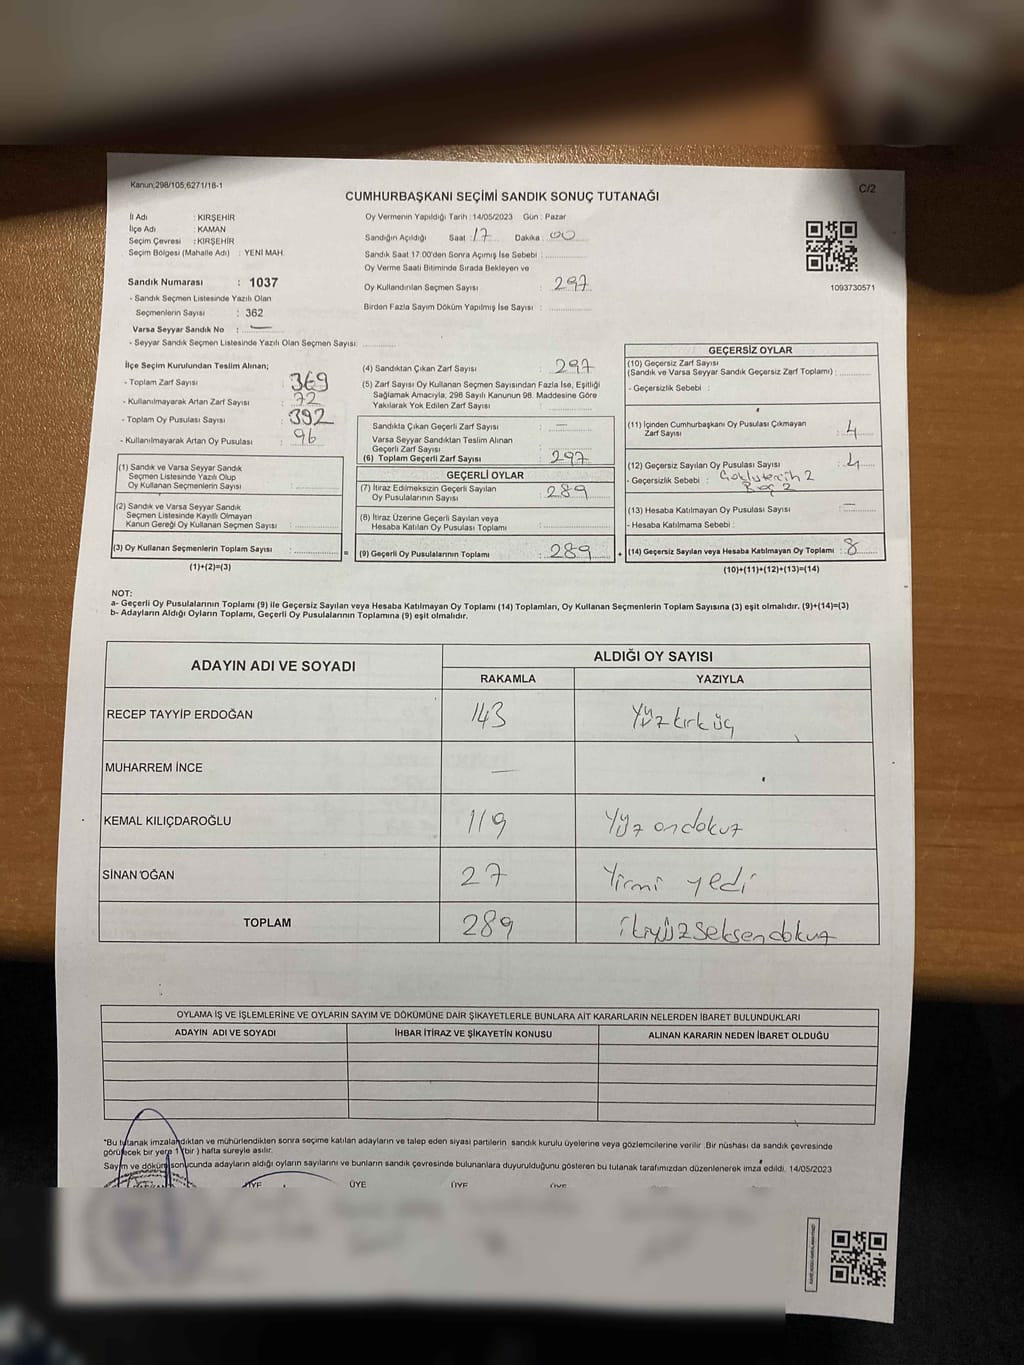 Kanun;298/105;6271/18-1
C/2
CUMHURBAŞKANI SEÇİMİ SANDIK SONUÇ TUTANAĞI
İl Adı : KIRŞEHİR
İlçe Adı : KAMAN
Seçim Çevresi : KIRŞEHİR
Seçim Bölgesi (Mahalle Adı) : YENİ MAH.
Sandık Numarası : 1037
- Sandık Seçmen Listesinde Yazılı Olan
Seçmenlerin Sayısı : 362
Varsa Seyyar Sandık No : —
- Seyyar Sandık Seçmen Listesinde Yazılı Olan Seçmen Sayısı:
Oy Vermenin Yapıldığı Tarih : 14/05/2023 Gün : Pazar
Sandığın Açıldığı Saat : 17 Dakika : 00
Sandık Saat 17:00'den Sonra Açımış İse Sebebi :
Oy Verme Saati Bitiminde Sırada Bekleyen ve
Oy Kullandırılan Seçmen Sayısı : 297
Birden Fazla Sayım Döküm Yapılmış İse Sayısı :
1093730571
İlçe Seçim Kurulundan Teslim Alınan;
- Toplam Zarf Sayısı : 369
- Kullanılmayarak Artan Zarf Sayısı : 72
- Toplam Oy Pusulası Sayısı : 392
- Kullanılmayarak Artan Oy Pusulası : 96
(1) Sandık ve Varsa Seyyar Sandık
Seçmen Listesinde Yazılı Olup
Oy Kullanan Seçmenlerin Sayısı :
(2) Sandık ve Varsa Seyyar Sandık
Seçmen Listesinde Kayıtlı Olmayan
Kanun Gereği Oy Kullanan Seçmen Sayısı :
(3) Oy Kullanan Seçmenlerin Toplam Sayısı : =
(1)+(2)=(3)
(4) Sandıktan Çıkan Zarf Sayısı : 297
(5) Zarf Sayısı Oy Kullanan Seçmen Sayısından Fazla İse, Eşitliği
Sağlamak Amacıyla, 298 Sayılı Kanunun 98. Maddesine Göre
Yakılarak Yok Edilen Zarf Sayısı :
Sandıkta Çıkan Geçerli Zarf Sayısı : —
Varsa Seyyar Sandıktan Teslim Alınan
Geçerli Zarf Sayısı
(6) Toplam Geçerli Zarf Sayısı : 297
GEÇERLİ OYLAR
(7) İtiraz Edilmeksizin Geçerli Sayılan
Oy Pusulalarının Sayısı : 289
(8) İtiraz Üzerine Geçerli Sayılan veya
Hesaba Katılan Oy Pusulası Toplamı :
(9) Geçerli Oy Pusulalarının Toplamı : 289 +
GEÇERSİZ OYLAR
(10) Geçersiz Zarf Sayısı
(Sandık ve Varsa Seyyar Sandık Geçersiz Zarf Toplamı) :
- Geçersizlik Sebebi :
(11) İçinden Cumhurbaşkanı Oy Pusulası Çıkmayan
Zarf Sayısı : 4
(12) Geçersiz Sayılan Oy Pusulası Sayısı : 4
- Geçersizlik Sebebi : Çoklu tercih 2
Boş 2
(13) Hesaba Katılmayan Oy Pusulası Sayısı : —
- Hesaba Katılmama Sebebi :
(14) Geçersiz Sayılan veya Hesaba Katılmayan Oy Toplamı : 8
(10)+(11)+(12)+(13)=(14)
NOT:
a- Geçerli Oy Pusulalarının Toplamı (9) ile Geçersiz Sayılan veya Hesaba Katılmayan Oy Toplamı (14) Toplamları, Oy Kullanan Seçmenlerin Toplam Sayısına (3) eşit olmalıdır. (9)+(14)=(3)
b- Adayların Aldığı Oyların Toplamı, Geçerli Oy Pusulalarının Toplamına (9) eşit olmalıdır.
ADAYIN ADI VE SOYADI
ALDIĞI OY SAYISI
RAKAMLA YAZIYLA
RECEP TAYYİP ERDOĞAN 143 Yüz kırk üç
MUHARREM İNCE —
KEMAL KILIÇDAROĞLU 119 Yüz ondokuz
SİNAN OĞAN 27 Yirmi yedi
TOPLAM 289 İkiyüzseksendokuz
OYLAMA İŞ VE İŞLEMLERİNE VE OYLARIN SAYIM VE DÖKÜMÜNE DAİR ŞİKAYETLERLE BUNLARA AİT KARARLARIN NELERDEN İBARET BULUNDUKLARI
ADAYIN ADI VE SOYADI İHBAR İTİRAZ VE ŞİKAYETİN KONUSU ALINAN KARARIN NEDEN İBARET OLDUĞU
*Bu tutanak imzalandıktan ve mühürlendikten sonra seçime katılan adayların ve talep eden siyasi partilerin sandık kurulu üyelerine veya gözlemcilerine verilir .Bir nüshası da sandık çevresinde
görülecek bir yere 1 (bir ) hafta süreyle asılır.
Sayım ve döküm sonucunda adayların aldığı oyların sayılarını ve bunların sandık çevresinde bulunanlara duyurulduğunu gösteren bu tutanak tarafımızdan düzenlenerek imza edildi. 14/05/2023
ÜYE ÜYE ÜYE ÜYE